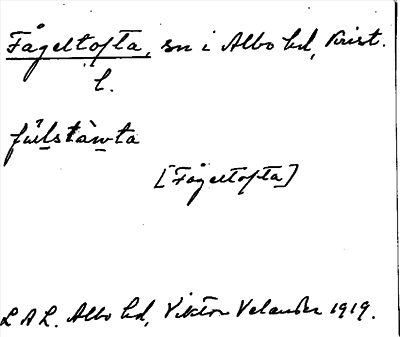 Fågeltofta, sn i Albo hd, Krist.
l.
fúlstàwta
[Fågeltofta]
LAL. Albo hd, Viktor Velander 1919.